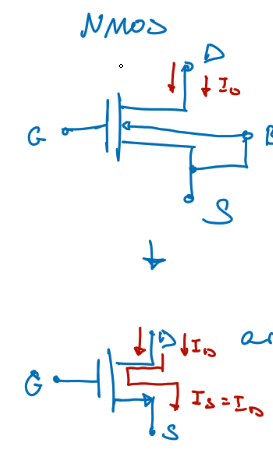 NMOS
D
I_D
G
B
S
D
I_D
G
I_S = I_D
S